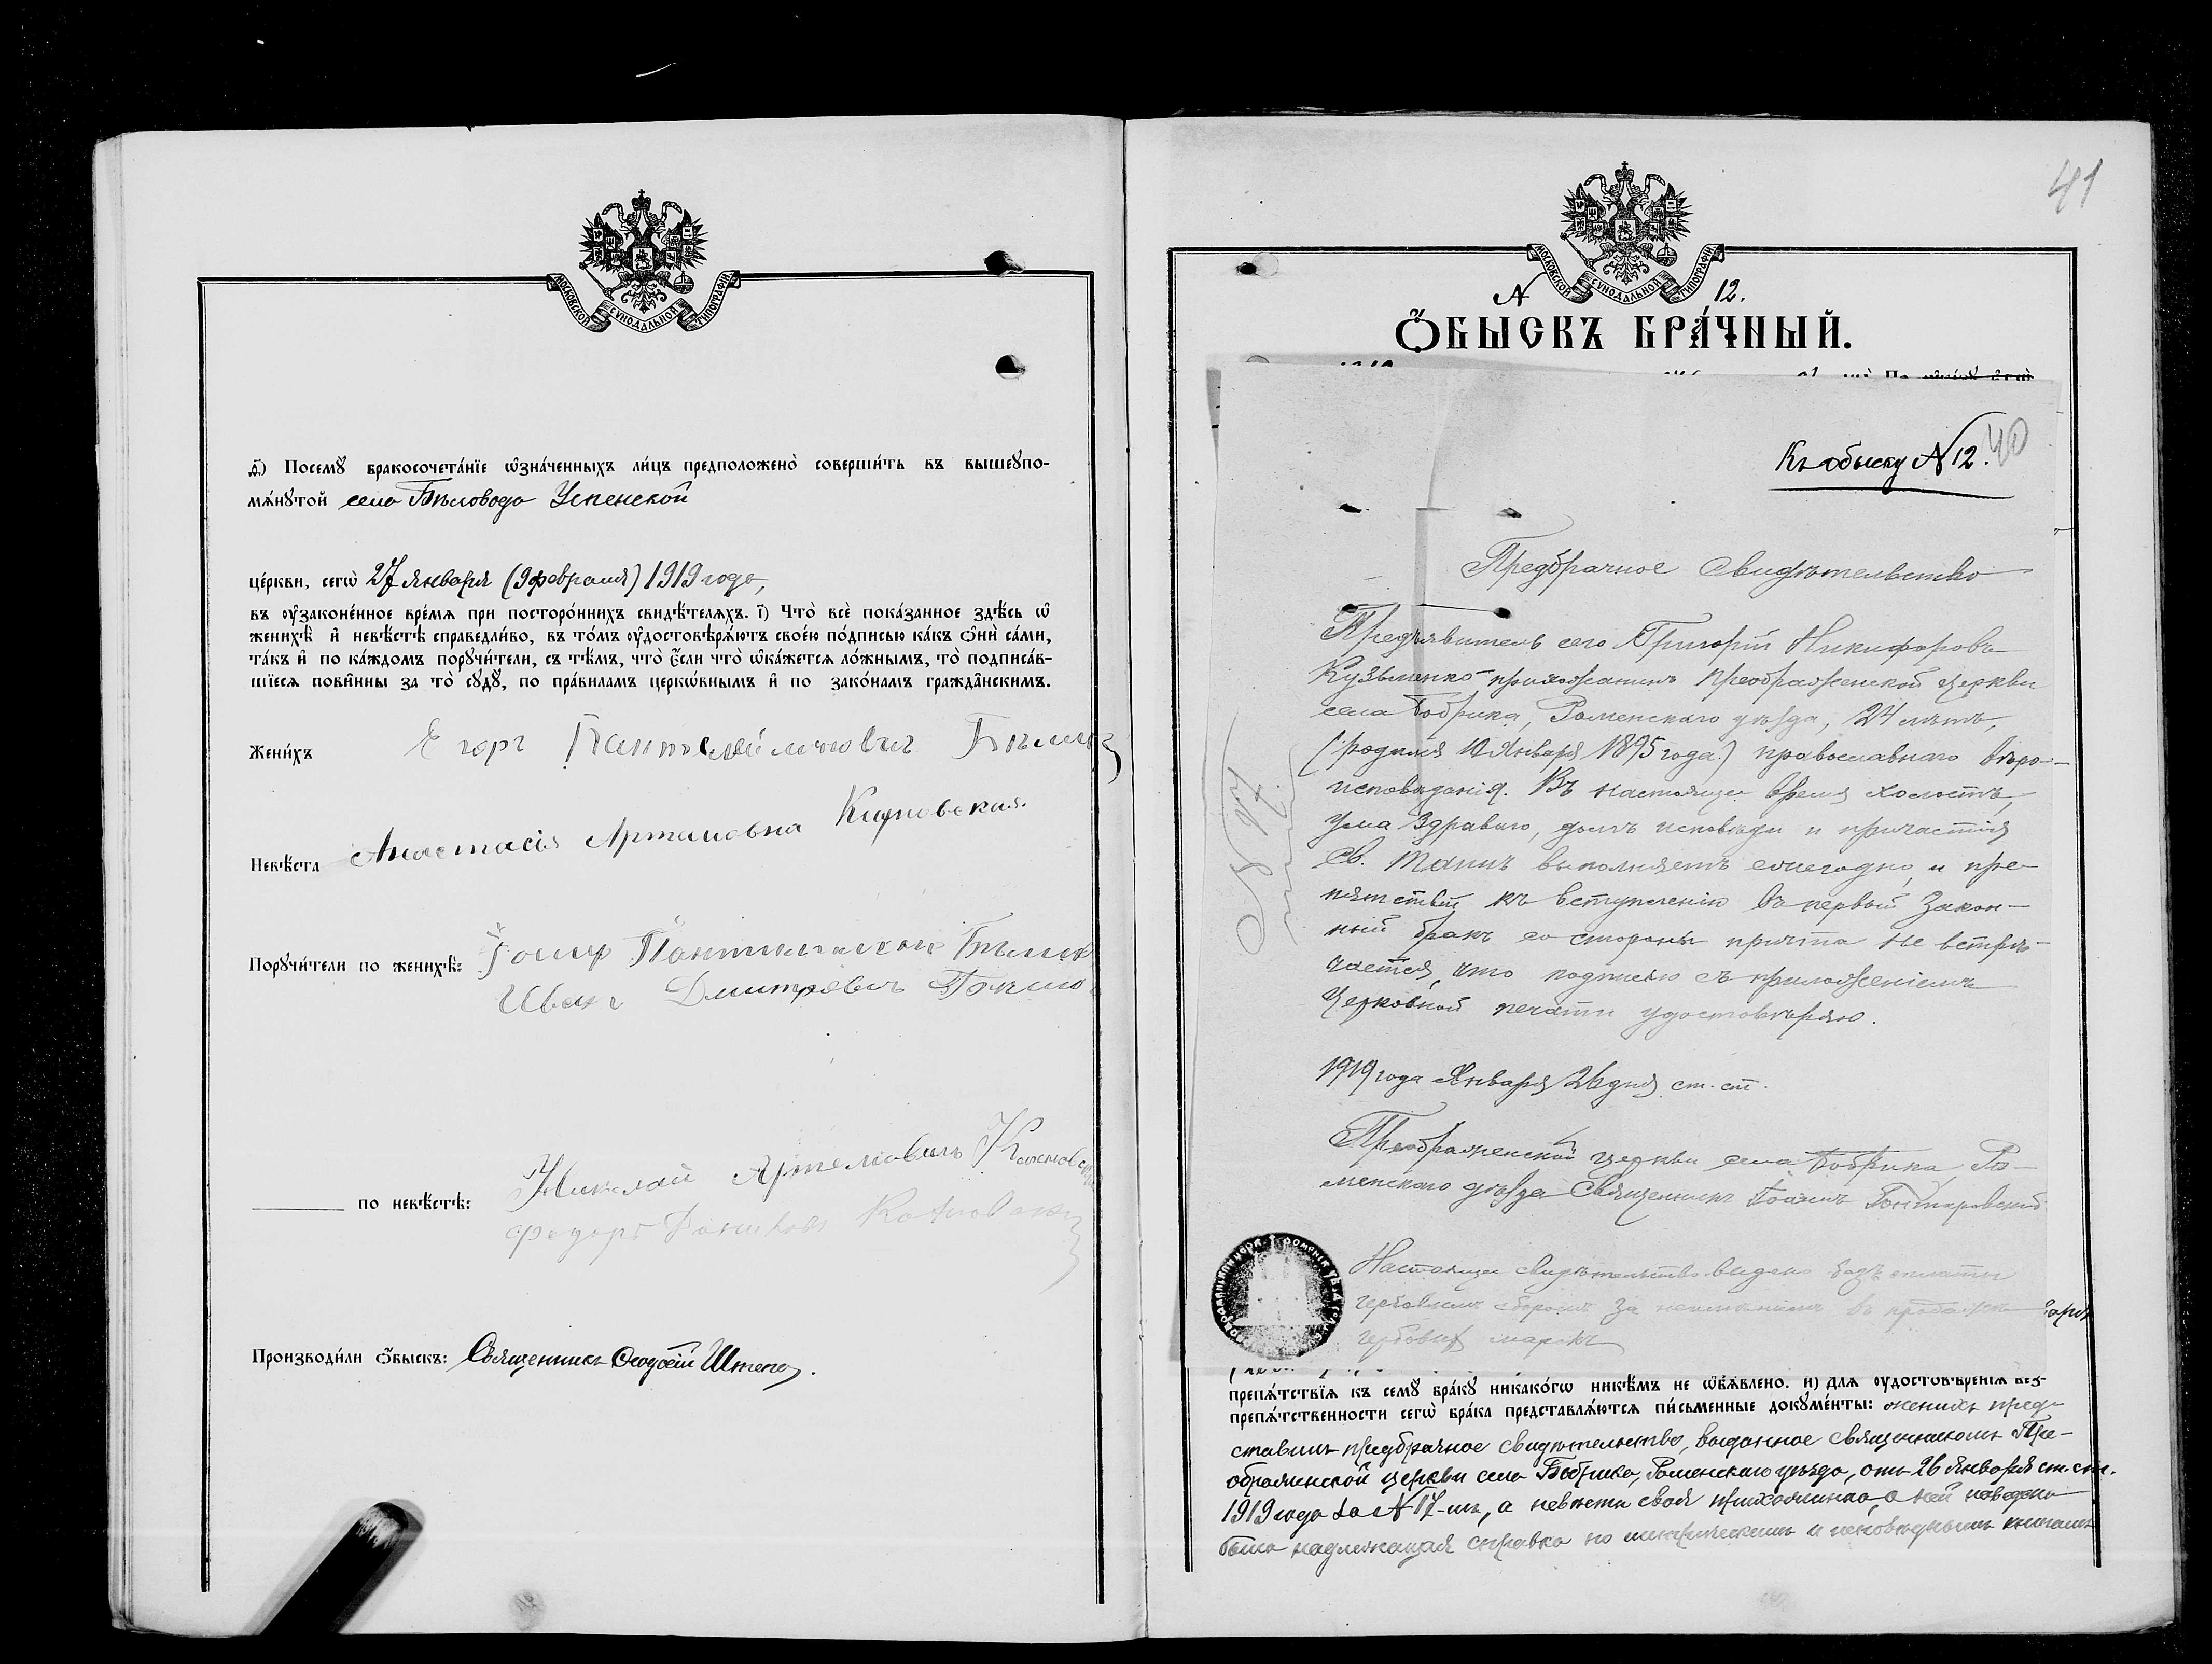 МОСКОВСКОЙ СУНОДАЛЬНОЙ ТИПОГРАФІИ
ѳ҃) Посемꙋ̀ бракосочета́нїе ѡ҆зна́ченныхъ ли́цъ предположено̀ соверши́ть въ вышеꙋпо-
мѧ́нꙋтой села Бѣловода Успенской
це́ркви, сегѡ̀ 27 января (9 февраля) 1919 года,
въ ᲂу҆зако́ненное вре́мѧ при посторо́ннихъ свидѣ́телѧхъ. і҃) Что̀ всѐ пока́занное здѣ́сь ѡ҆
женихѣ̀ и҆ невѣ́стѣ справедли́во, въ то́мъ ᲂу҆достовѣрѧ́ютъ свое́ю по́дписью ка́къ ѻ҆нѝ са́ми,
та́къ и҆ по ка́ждомъ порꙋчи́тели, съ тѣ́мъ, что̀ є҆́сли что̀ ѡ҆ка́жетсѧ ло́жнымъ, то̀ подписа́в-
шїесѧ пови́нны за то̀ сꙋдꙋ̀, по пра́виламъ церко́внымъ и҆ по зако́намъ гражда́нскимъ.
Жени́хъ Егорг
Невѣ́ста Анастасія Артемовна
Порꙋчи́тели по женихѣ̀:
Иванг Дмитровичъ
по невѣ́стѣ: Николай Артемовичъ
Федоръ
Производи́ли ѻ҆́быскъ: Священникъ Ѳеодосій Штепа.
41
МОСКОВСКОЙ СУНОДАЛЬНОЙ ТИПОГРАФІИ
N 12.
Ѻ҆́БЫСКЪ БРА́ЧНЫЙ.
Къ обыску N 12. 40
Предбрачное Свидѣтельство
N 17.
Предъявитель сего Григорій Никифоровъ
Кузьменко прихожанинъ Преображенской церкви
села Бобрика, Роменскаго уѣзда, 24 лѣтъ,
(родился 10 Января 1895 года) православнаго вѣро-
исповѣданія. Въ настоящее время холостъ,
ума здраваго, долгъ исповѣди и причастія
Св. Таинъ выполняетъ ежегодно, и пре-
пятствій къ вступленію въ первый закон-
ный бракъ со стороны причта не встрѣ-
чается, что подписью съ приложеніемъ
церковной печати удостовѣряю.
1919 года Января 26 дня ст. ст.
Преображенской церкви села Бобрика, Ро-
менскаго уѣзда Священникъ Іоаннъ
Настоящее свидѣтельство выдано безъ оплаты
гербовымъ сборомъ за неимѣніемъ въ продажѣ
гербовыхъ марокъ
препѧ́тствїѧ къ семꙋ̀ бра́кꙋ никако́гѡ никѣ́мъ не ѡ҆бъѧ́влено. и҃) Длѧ ᲂу҆достовѣ́ренїѧ без-
препѧ́тственности сегѡ̀ бра́ка представлѧ́ютсѧ пи́сьменные докꙋме́нты: женихъ пред-
ставилъ предбрачное свидѣтельство, выданное священникомъ Пре-
ображенской церкви села Бобрика, Роменскаго уѣзда, отъ 26 января ст. ст.
1919 года за N 17-мъ, а невѣста своя прихожанка, о ней наведена
была надлежащая справка по метрическимъ и исповѣднымъ книгамъ